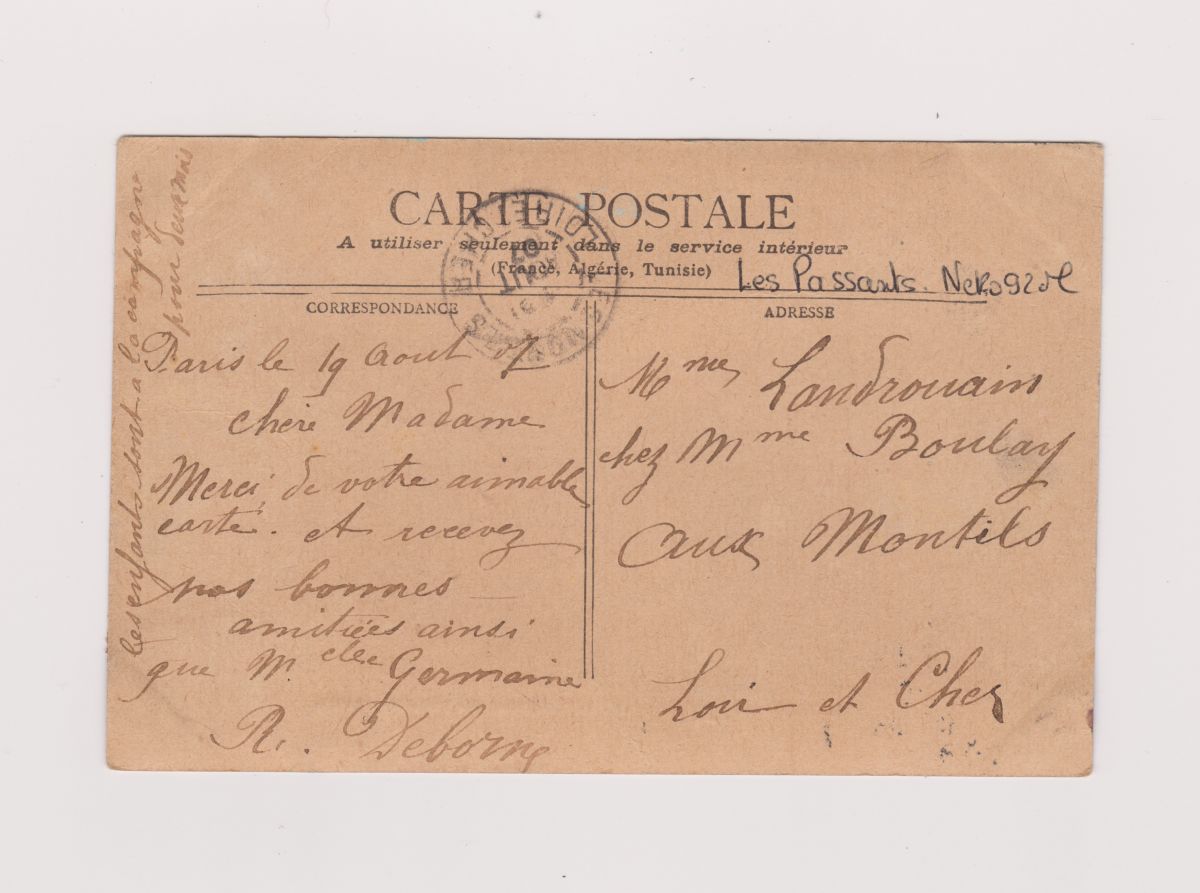 CARTE POSTALE
A utiliser seulement dans le service intérieur
(France, Algérie, Tunisie)
Les Passants.
CORRESPONDANCE
ADRESSE
Paris le 19 Aout 07
chere Madame
Merci de votre aimable
carte. et recevez
nos bonnes
amitiées ainsi
que Melle Germaine
R. Deborne
les enfants sont a la campagne
pour deux mois
Mme Landrouain
chez Mme Boulay
aux Montils
Loir et Cher
LOIR ET CHER